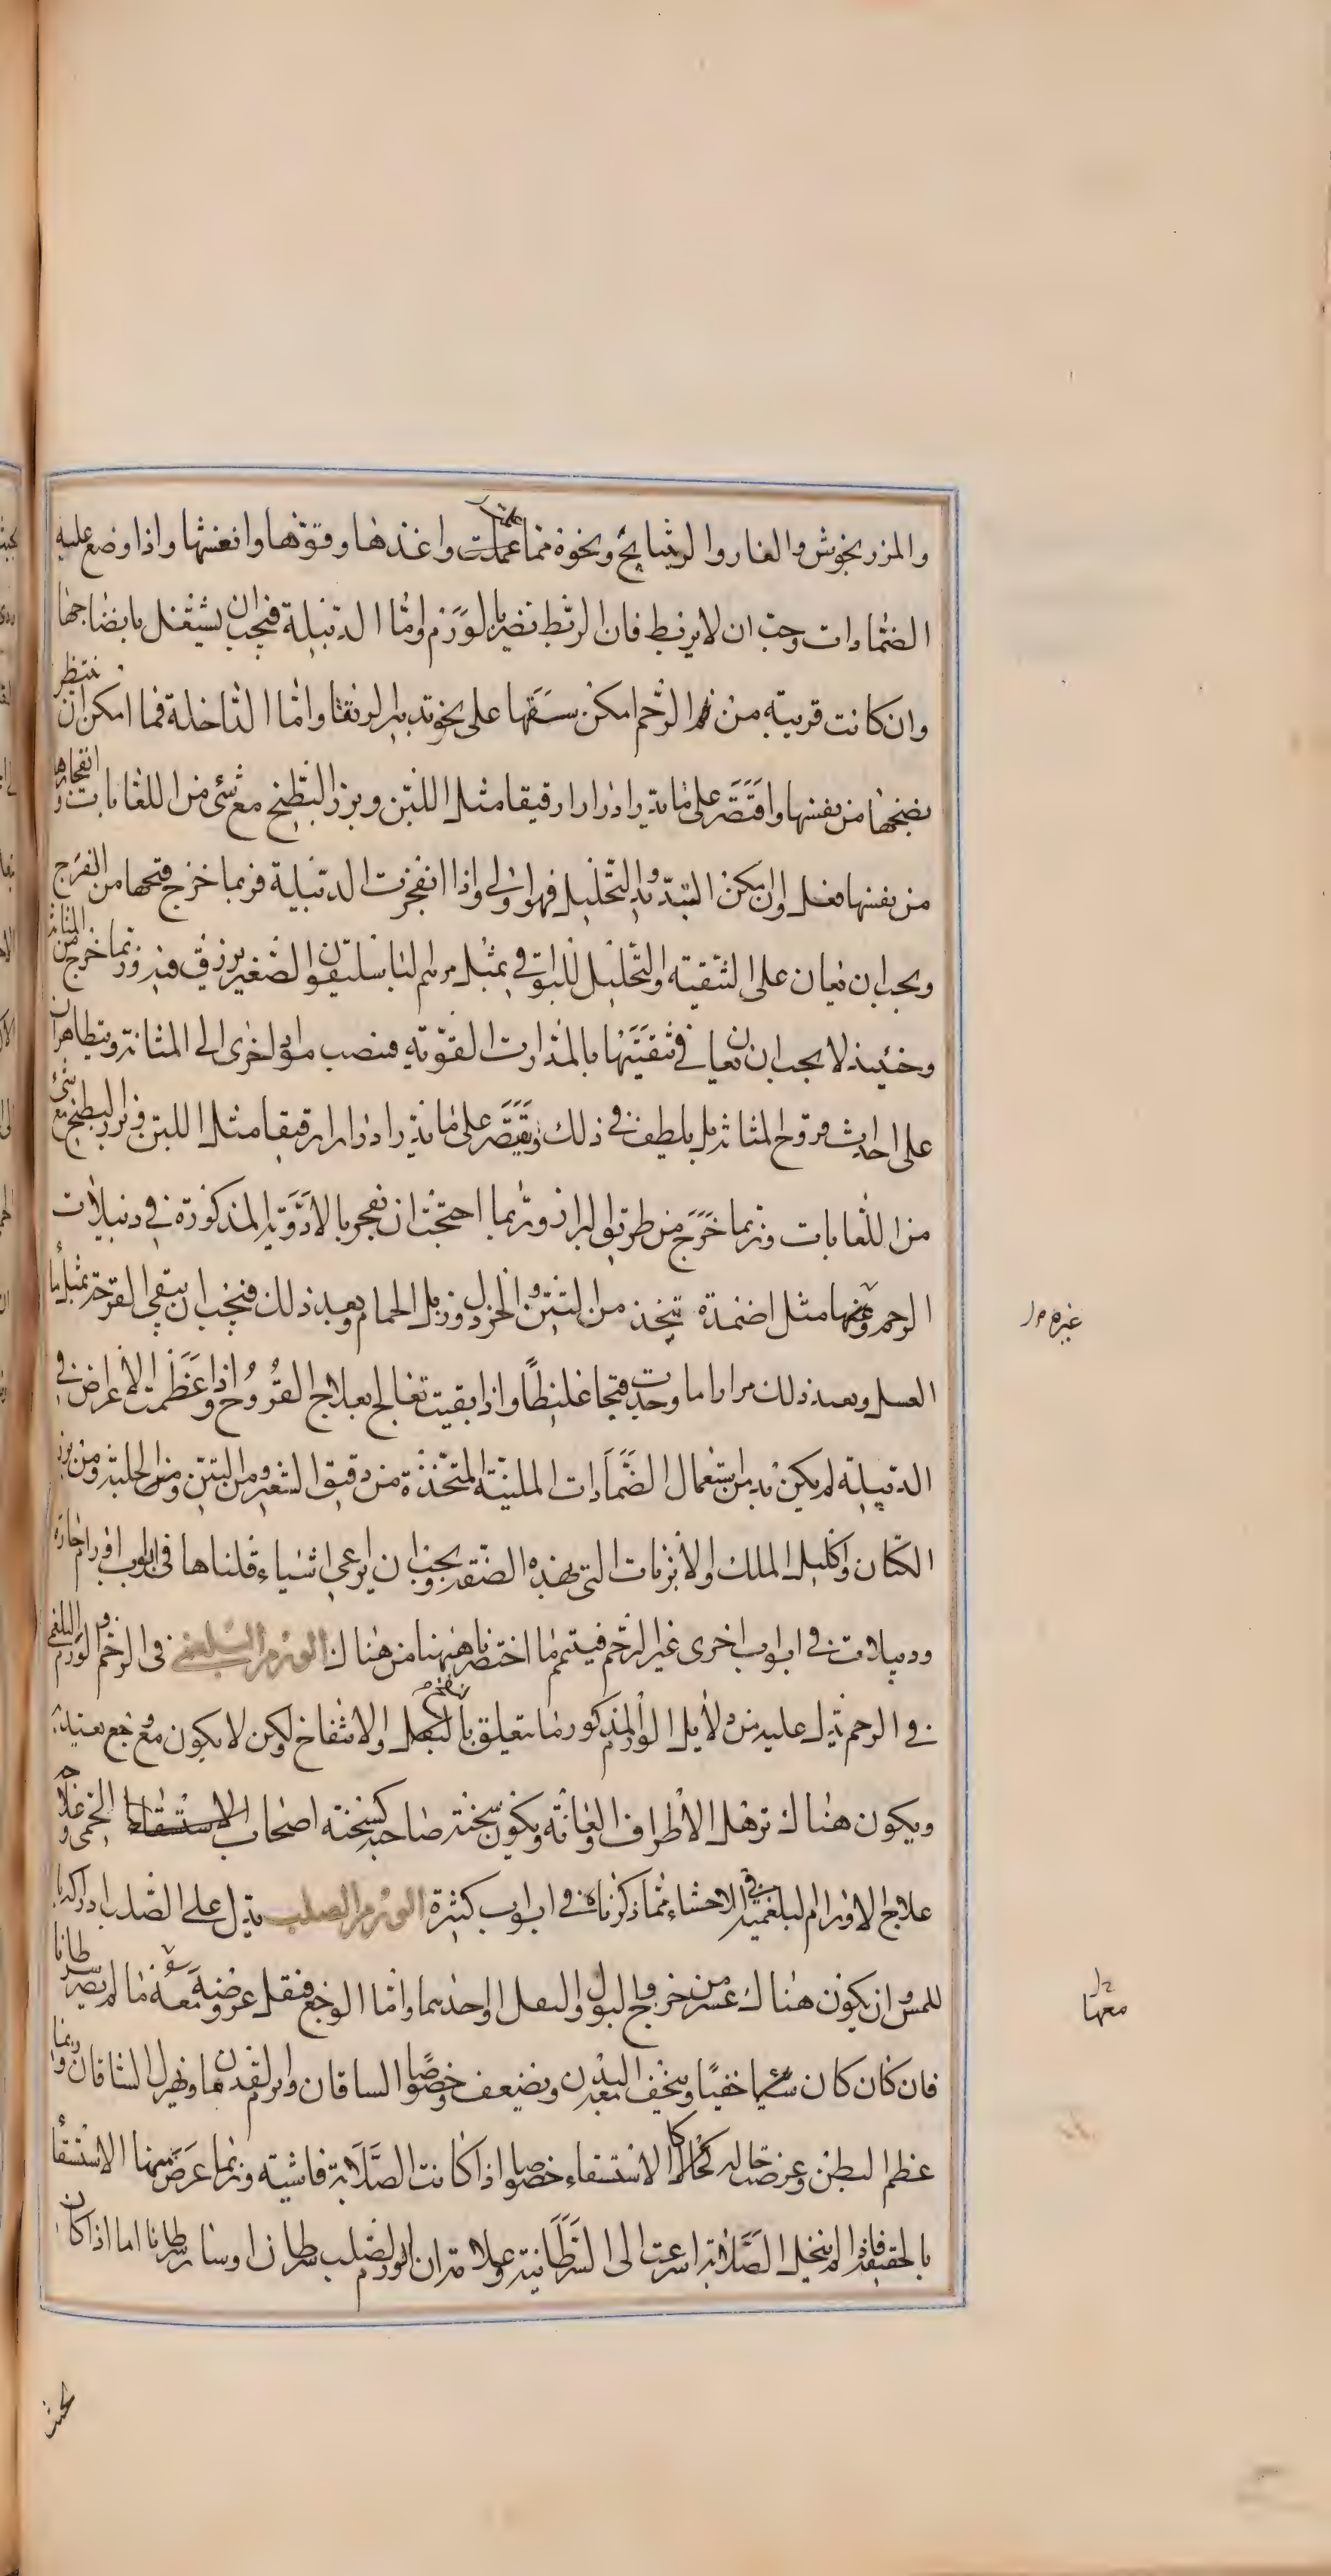 والمزرنجوش والغار والرشايح ونحوه مما عملت واغذها وقوتها وانعشها واذا وضع عليه
الضمادات وجب ان لا يربط فان الربط تضر بالورم واما الدبيلة فيجب ان يشتغل بانضاجها
وان كانت قريبة من فم الرحم امكن سقها على نحو تدبير الرتقا واما الداخلة فما امكن ان ننتظر
نضجها من نفسها واقتصر على ما يدر ادرارا رقيقا مثل اللبن وبزر البطيخ مع شئ من اللعابات وانفجارها
من نفسها فعل وان يمكن التبديد والتحليل فهو اولى واذا انفجرت الدبيلة فربما خرج قيحها من الفرج
ويجب ان يعان على التنقية والتحليل للبواقي بمثل مرهم الباسليقون الصغير يزرق فيه وربما خرج من المثانة
وحينئذ لا يجب ان يعان في تنقيتها بالمدرات القوية فينصب مواد اخرى الى المثانة ويتظاهران
على احداث قروح المثانة بل يلطف في ذلك ويقتصر على ما يدر ادرارا رقيقا مثل اللبن وبزر البطيخ مع شئ
من اللعابات وربما خرج من طريق البراز وربما احتجت ان تفجر بالادوية المذكورة في دبيلات
الرحم وغيرها مثل اضمدة تتخذ من التين والخردل وزبل الحمام وبعد ذلك فيجب ان ينقي القرحة بمثل ما
العسل وبعد ذلك مرارا ما وجدت قيحا غليظا واذا بقيت تعالج بعلاج القروح واذا عظمت الاعراض في
الدبيلة لم يكن بد من استعمال الضمادات الملينة المتخذة من دقيق الشعير ومن التين ومن الحلبة ومن بزر
الكتان واكليل الملك والابزنات التي بهذه الصفة ويجب ان يراعى اشياء قلناها في ابواب اورام حارة
ودبيلات في ابواب اخرى غير الرحم فيتمم ما اختصرناه هنا من هناك الورم البلغمي في الرحم والورم البلغمي
في الرحم يدل عليه من دلايل الورم المذكور ما يتعلق بالثقل والانتفاخ ولكن لا يكون معه وجع يعتد به
ويكون هناك ترهل الاطراف والعانة ويكون سحنة صاحبه كسحنة اصحاب الاستسقاء اللحمي وعلاجه
علاج الاورام البلغمية في الاحشاء مما ذكرناه في ابواب كثيرة الورم الصلب يدل على الصلب ادراكها
للمس وان يكون هناك عسر من خروج البول والثفل او احدهما واما الوجع فتقل عروضه معه ما لم يصر سرطانا
فان كان كان شيئا خفيا ويخف البدن معه ويضعف وخصوصا الساقان ويرم القدمان وتهزل الساقان وربما
عظم البطن وعرضت حاله كحال الاستسقاء خصوصا اذا كانت الصلابة فاشية وربما عرض منها الاستسقا
بالحقيقة فاذا لم ينحل الصلابة اسرعت الى السرطانية وعلامة ان الورم الصلب سرطان او سار سرطانا اما اذا كان
غيره
معها
بحيث